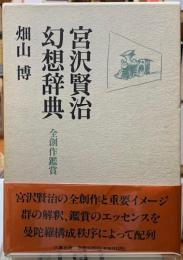 宮沢賢治
幻想辞典
全創作鑑賞
畑山 博
宮沢賢治の全創作と重要イメージ
群の解釈、鑑賞のエッセンスを
曼陀羅構成秩序によって配列